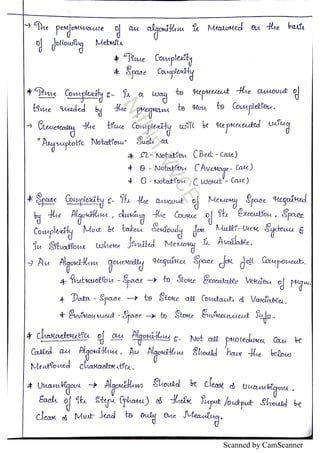 → The performance of an algorithm is Measured on the basis
of following Metrics
* Time Complexity
* Space Complexity
* Time Complexity :- Is a way to represent the amount of
time needed by the program to run to Completion.
→ Generally the time Complexity will be represented using
"Asymptotic Notation" Such as
* Ω - Notation (Best - Case)
* Θ - Notation (Average - Case)
* O - Notation (Worst - Case)
* Space Complexity :- It's the amount of Memory Space required
by the Algorithm, during the Course of its Execution. Space
Complexity Must be taken Seriously for Multi-User Systems &
In Situations Where limited Memory is Available.
→ An Algorithm generally requires Space for Components.
* Instruction - Space → to Store Executable Version of
* Data - Space → to Store all Constants & Variables.
* Environment - Space → to Store Environment Info.
* Characteristics of an Algorithms :- Not all procedures Can be
Called an Algorithm. An Algorithm Should have the below
Mentioned characteristics.
* Unambiguous → Algorithm Should be Clear & Unambiguous.
Each of its Steps (phases) & their Input/output Should be
Clear & Must lead to only One Meaning.
Scanned by CamScanner